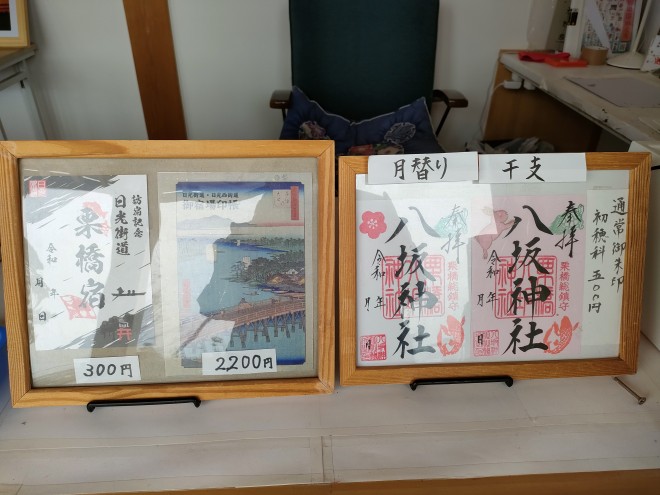 訪宿記念
日光街道
栗橋宿
令和 年
月 日
300円
日光街道・日光西街道
御宿場印帳
2,200円
月替り
干支
奉拝
八坂神社
令和 年
月
栗橋総鎮守
奉拝
八坂神社
令和 年
月
栗橋総鎮守
通常御朱印
初穂料 五〇〇円